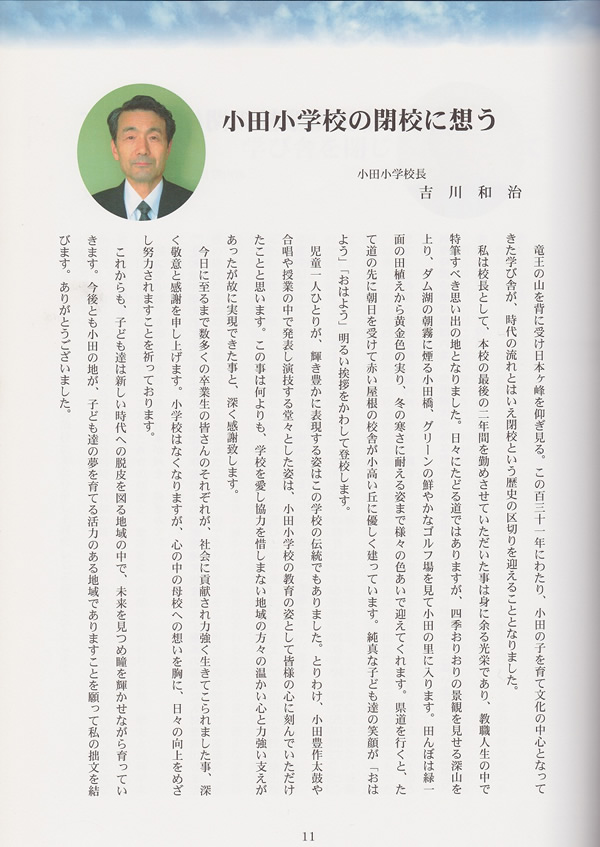 小田小学校の閉校に想う
小田小学校長
吉川和治
竜王の山を背に受け日本ヶ峰を仰ぎ見る。この百三十一年にわたり、小田の子を育て文化の中心となって
きた学び舎が、時代の流れとはいえ閉校という歴史の区切りを迎えることとなりました。
私は校長として、本校の最後の二年間を勤めさせていただいた事は身に余る光栄であり、教職人生の中で
特筆すべき思い出の地となりました。日々にたどる道ではありますが、四季おりおりの景観を見せる深山を
上り、ダム湖の朝霧に煙る小田橋、グリーンの鮮やかなゴルフ場を見て小田の里に入ります。田んぼは緑一
面の田植えから黄金色の実り、冬の寒さに耐える姿まで様々な色あいで迎えてくれます。県道を行くと、た
て道の先に朝日を受けて赤い屋根の校舎が小高い丘に優しく建っています。純真な子ども達の笑顔が「おは
よう」「おはよう」明るい挨拶をかわして登校します。
児童一人ひとりが、輝き豊かに表現する姿はこの学校の伝統でもありました。とりわけ、小田豊作太鼓や
合唱や授業の中で発表し演技する堂々とした姿は、小田小学校の教育の姿として皆様の心に刻んでいただけ
たことと思います。この事は何よりも、学校を愛し協力を惜しまない地域の方々の温かい心と力強い支えが
あったが故に実現できた事と、深く感謝致します。
今日に至るまで数多くの卒業生の皆さんのそれぞれが、社会に貢献され力強く生きてこられました事、深
く敬意と感謝を申し上げます。小学校はなくなりますが、心の中の母校への想いを胸に、日々の向上をめざ
し努力されますことを祈っております。
これからも、子ども達は新しい時代への脱皮を図る地域の中で、未来を見つめ瞳を輝かせながら育ってい
きます。今後とも小田の地が、子ども達の夢を育てる活力のある地域でありますことを願って私の拙文を結
びます。ありがとうございました。
11